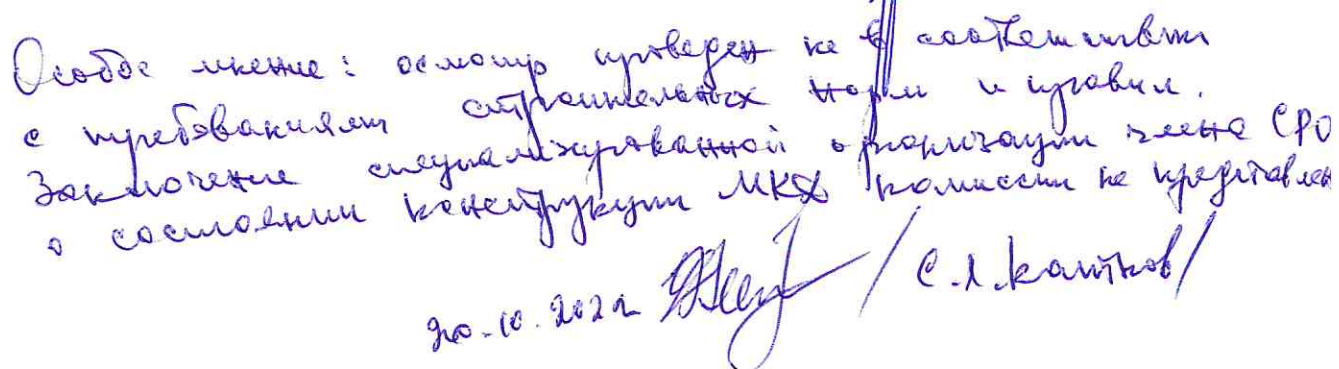 Особое мнение: осмотр проведен не в соответствии
с требованиям строительных норм и правил.
Заключение специализированной организации члена СРО
о состоянии конструкции МКД комиссии не представлен
20.10.2022 /С.Л.